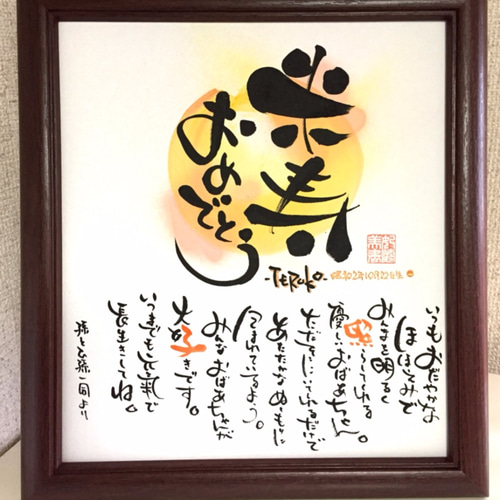 米寿
おめでとう
-TERUKO-
いつもおだやかな
ほほえみで
みんなを明るく
照らしてくれる
優しいおばあちゃん。
ただそこにいてくれるだけで
あたたかなぬくもりに
包まれているよう。
みんなおばあちゃんが
大好きです。
いつまでも元気で
長生きしてね。
孫とひ孫一同より